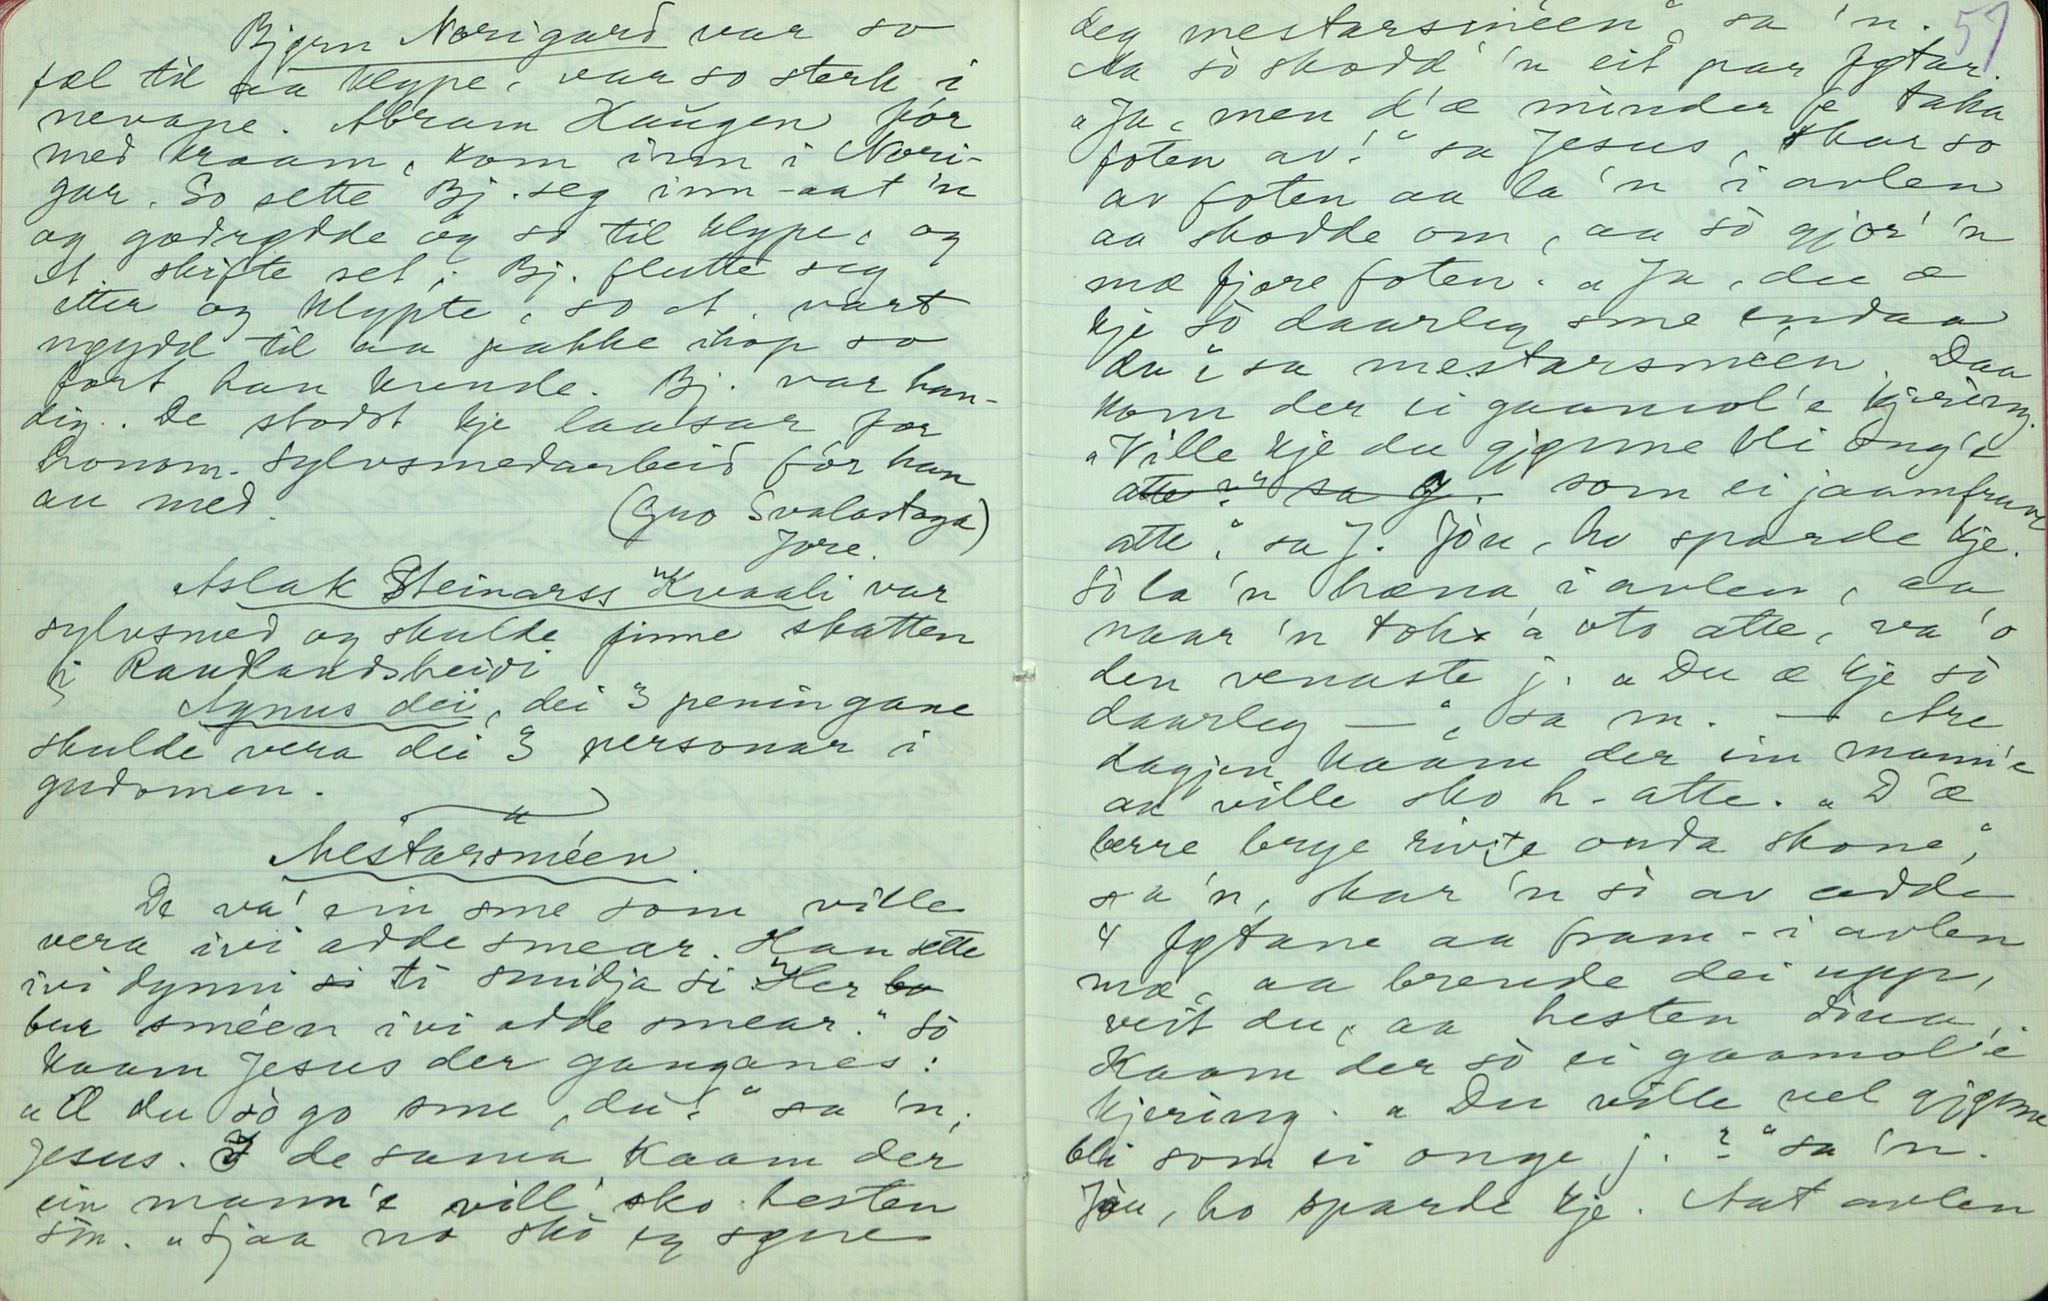 Bjørn Norigard var so
fæl til aa klype, var so sterk i
nevane. Abram Haugen fór
med kraam, kom inn i Nori-
gar. So sette Bj. seg inn-aat 'n
og godrødde og so til klype, og
A. skifte set, Bj. flutte seg
etter og klypte, so A. vart
nøydd til aa pakke ihop so
fort han kunde. Bj. var han-
dig. De stodst kje laasar for
honom. Sylvsmedarbeid fór han
au med.
(Gro Svalastoga)
Jore.
Aslak Steinarss Kvaali var
sylvsmed og skulde finne skatten
i Raulandsheidi
Agnus dei, dei 3 peningane
skulde vera dei 3 personar i
gudomen.
Mestarsméen.
De va' ein sme som ville
vera ivi adde smear. Han sette
ivi dynni si ti smidja si "Her bo
bur sméen ivi adde smear." So
kaam Jesus der ganganes:
"Æ du sò go sme, du?" sa 'n,
Jesus. I de sama kaam der
ein mann'e vill' sko hesten
sin. "Sjaa no sko eg syne
57
deg mestarsméen" sa 'n.
Aa sò skodd' 'n eit par føtar.
"Ja, men d'æ minder e taka
foten av!" sa Jesus, skar so
av foten aa la 'n i avlen
aa skodde om, aa sò gjor' 'n
mæ fjore foten. "Ja, du æ
kje sò daarleg sme endaa
du" sa mestarsméen. Daa
kom der ei gaamol'e kjering.
"Ville kje du gjønne bli ong'e
atte?" sa J. som ei jaamfruve
atte," sa J. Jòu, ho sparde kje.
Sò la 'n hæna i avlen, aa
naar 'n tok 'a oto atte, va 'o
den venaste j. "Du æ kje sò
daarleg —", sa m. — Are
dagjen kaam der ein mann'e
aa ville sko h. atte. "D'æ
berre brye rivte onda skone",
sa 'n, skar 'n sò av adde
4 føtane aa fram-i avlen
mæ, aa brende dei upp,
veit du, aa hesten døua,
Kaam der sò ei gaamol'e
kjering. "Du ville vel gjønne
bli som ei onge j.?" sa 'n.
Jòu, ho sparde kje. Aat avlen